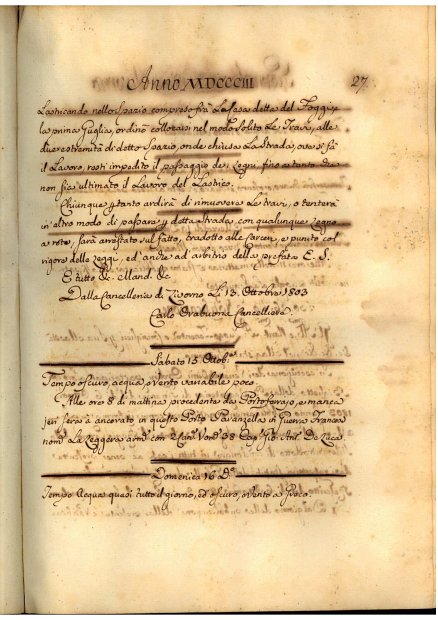 Anno MDCCCIII
27.
Lastricando nello Spazio compreso frà La Casa detta del Foggi, e
la prima Guglia, ordinò collocarsi nel modo solito Le Travi, alle
due estremità di detto Spazio, onde chiusa La Strada, ove si fà
il Lavoro, resti impedito il passaggio de' Legni fino a tanto che
non sia ultimato il Lavoro del Lastrico.
Chiunque ptanto ardirà di rimuovere Le travi, o tenterà
in altro modo di passare p detta Strada con qualunque Legno
a rote, sarà arrestato sul fatto, tradotto alle Carceri, e punito col
rigore delle Leggi, ed anche ad arbitrio della prefata E. S.
E tutto &c. Mand. &c
Dalla Cancelleria di Livorno Li 13. Ottobre 1803
Carlo Bonajuto Cancelliere
Sabato 15 Ottob.e
Tempo oscuro, acqua, e vento variabile poco
Alle ore 8 di mattina procedente da Portoferrajo, e manca
jeri sera à ancorato in questo Porto Paranzella in Guerra Francese
nom.a La Leggera arm.a con 2 Can.i Uom.i 38 Cap.o Gio. Ant.o De Luca
Domenica 16 D.o
Tempo Acqua quasi tutto il giorno, ed oscuro, vento a Scirocco.